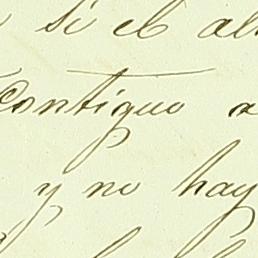 si el al
contiguo a
y no hay